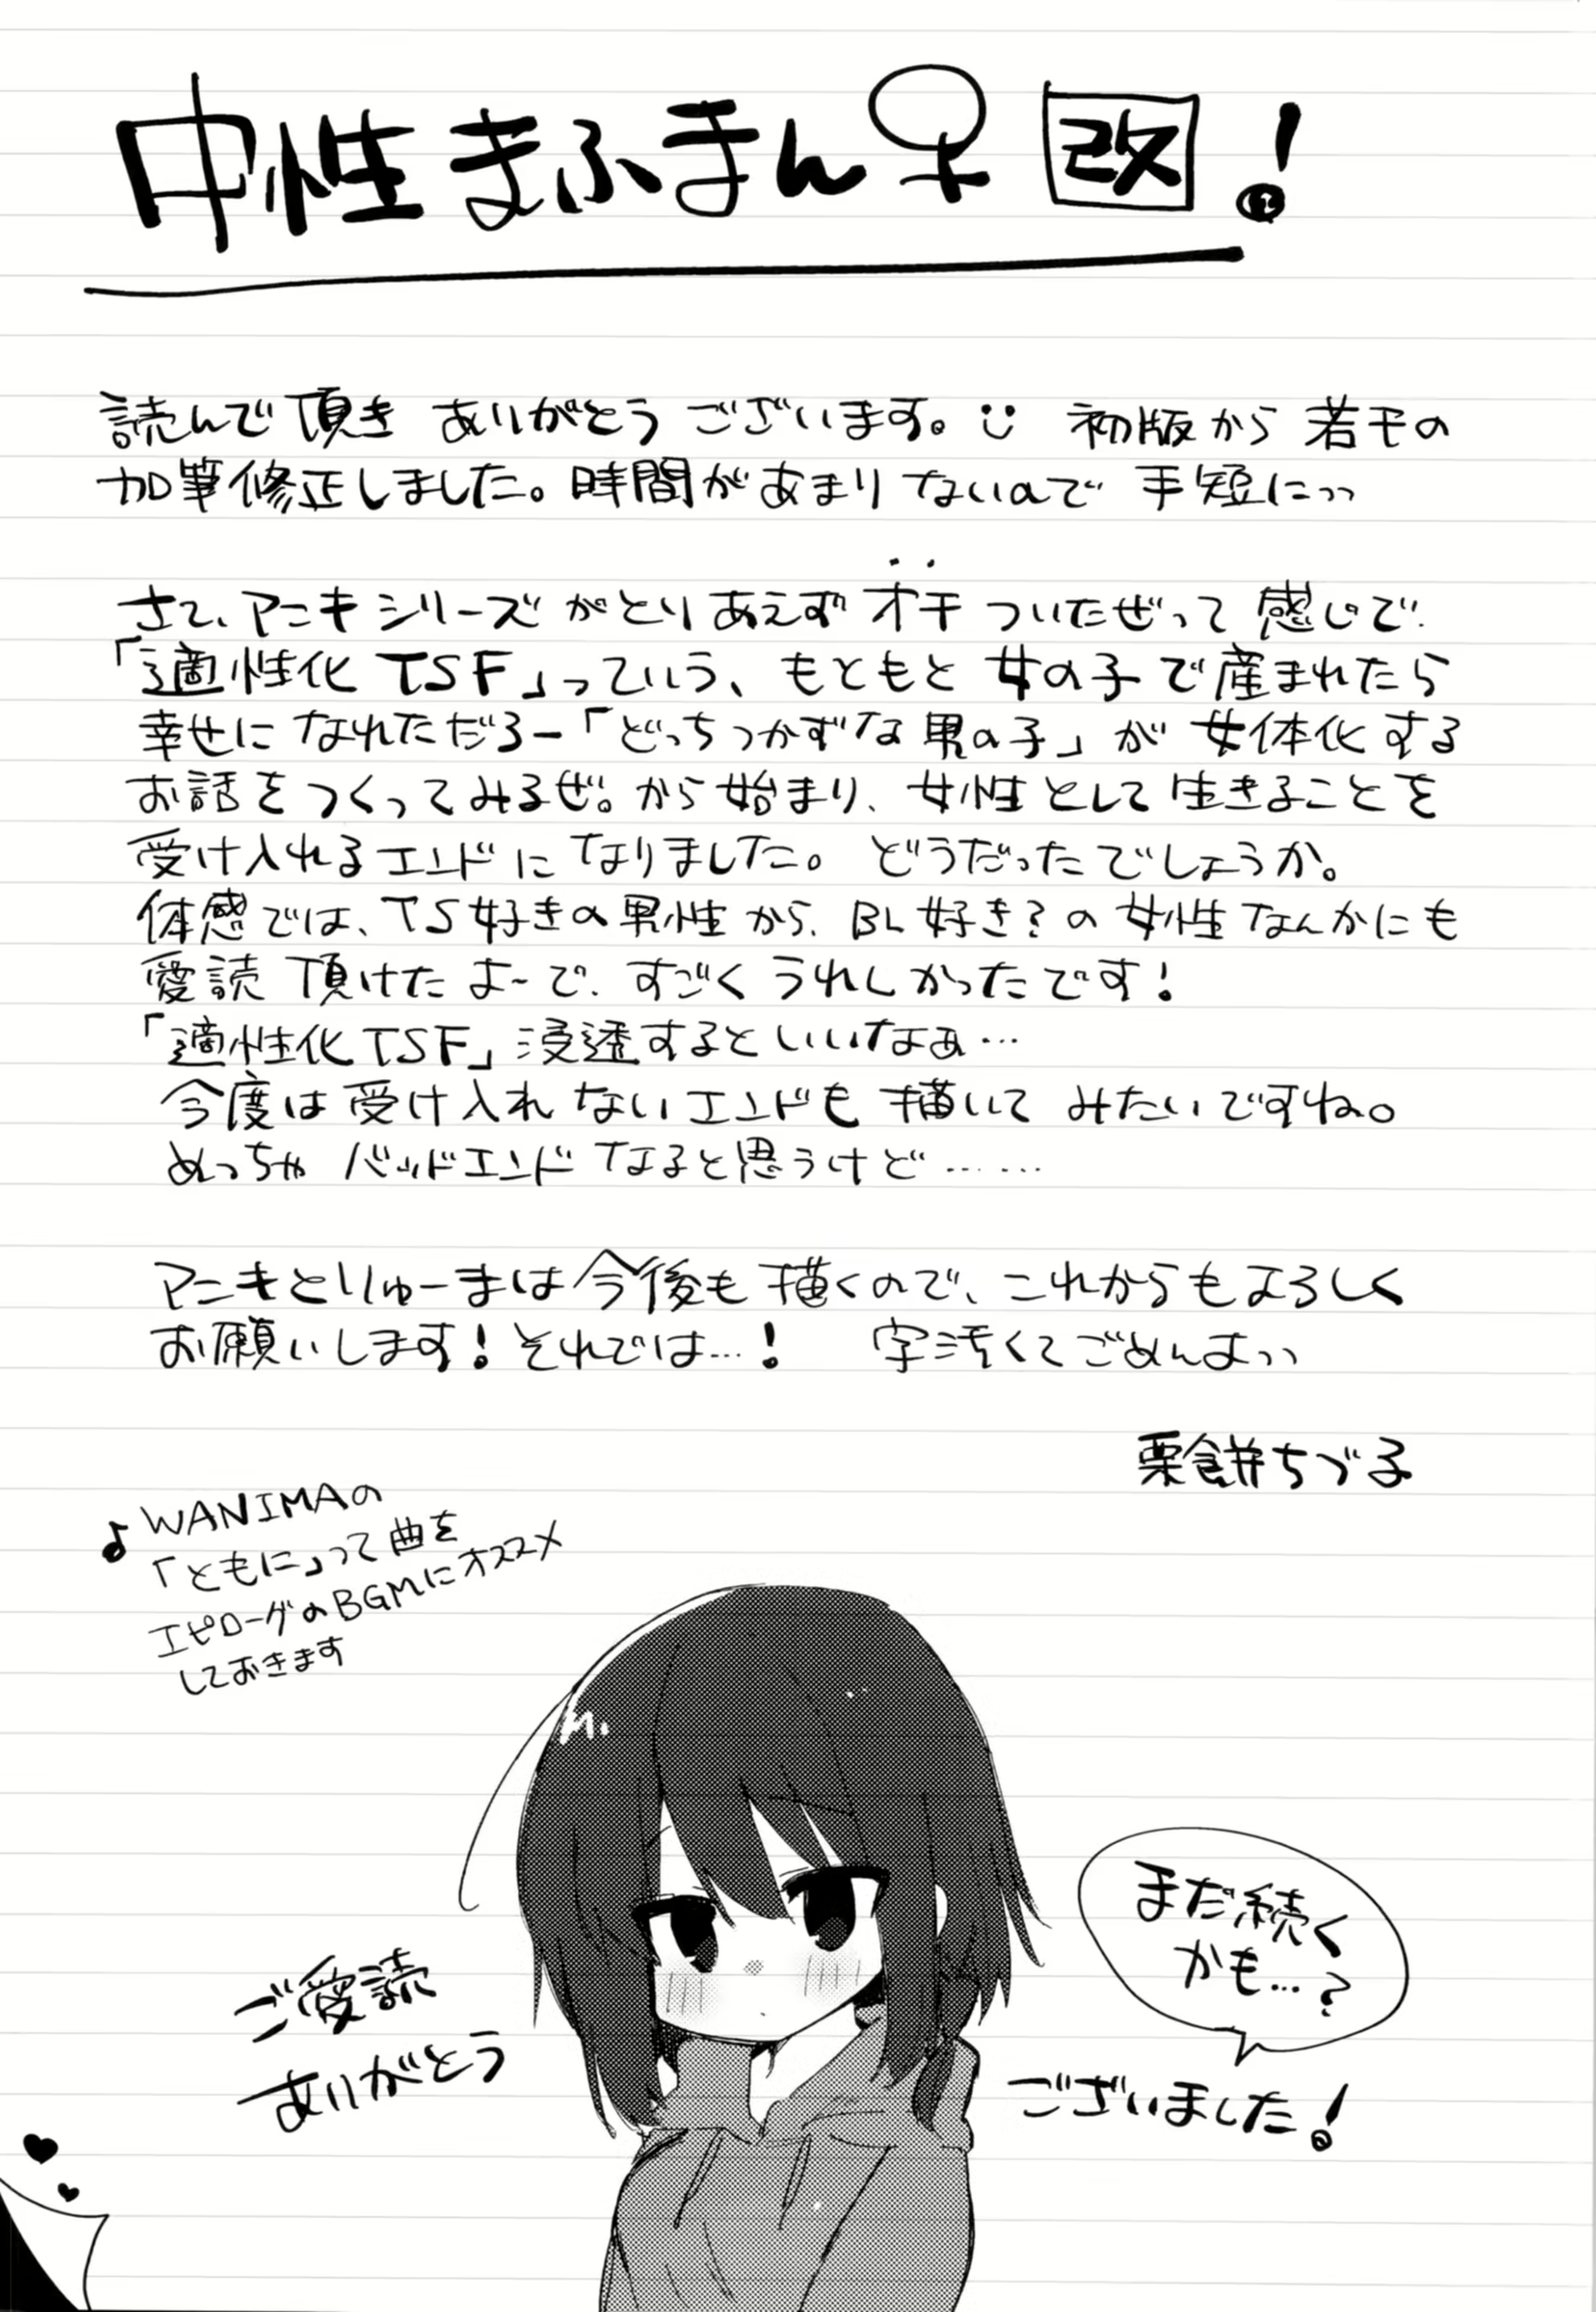 中性まふまん♀ 改!
読んで頂き ありがとう ございます。 初版から 若干の
加筆修正しました。時間があまりないので 手短にっっ
さて、アニキシリーズがとりあえずオチついたぜって感じで
「適性化TSF」っていう、もともと女の子で産まれたら
幸せになれただろー「どっちつかずな男の子」が女体化する
お話をつくってみるぜ。から始まり、女性として生きることを
受け入れるエンドになりました。どうだったでしょうか。
体感では、TS好きの男性から、BL好き?の女性なんかにも
愛読頂けたよーで、すごくうれしかったです!
「適性化TSF」浸透するといいなぁ…
今度は受け入れないエンドも描いてみたいですね。
めっちゃバッドエンドなると思うけど……
アニキとりゅーまは今後も描くので、これからもよろしく
お願いします!それでは…! 字汚くてごめんよっっ
栗餅ちづる
♪WANIMAの
「ともに」って曲を
エピローグのBGMにオススメ
しておきます
まだ続く
かも…?
ご愛読
ありがとう
ございました!